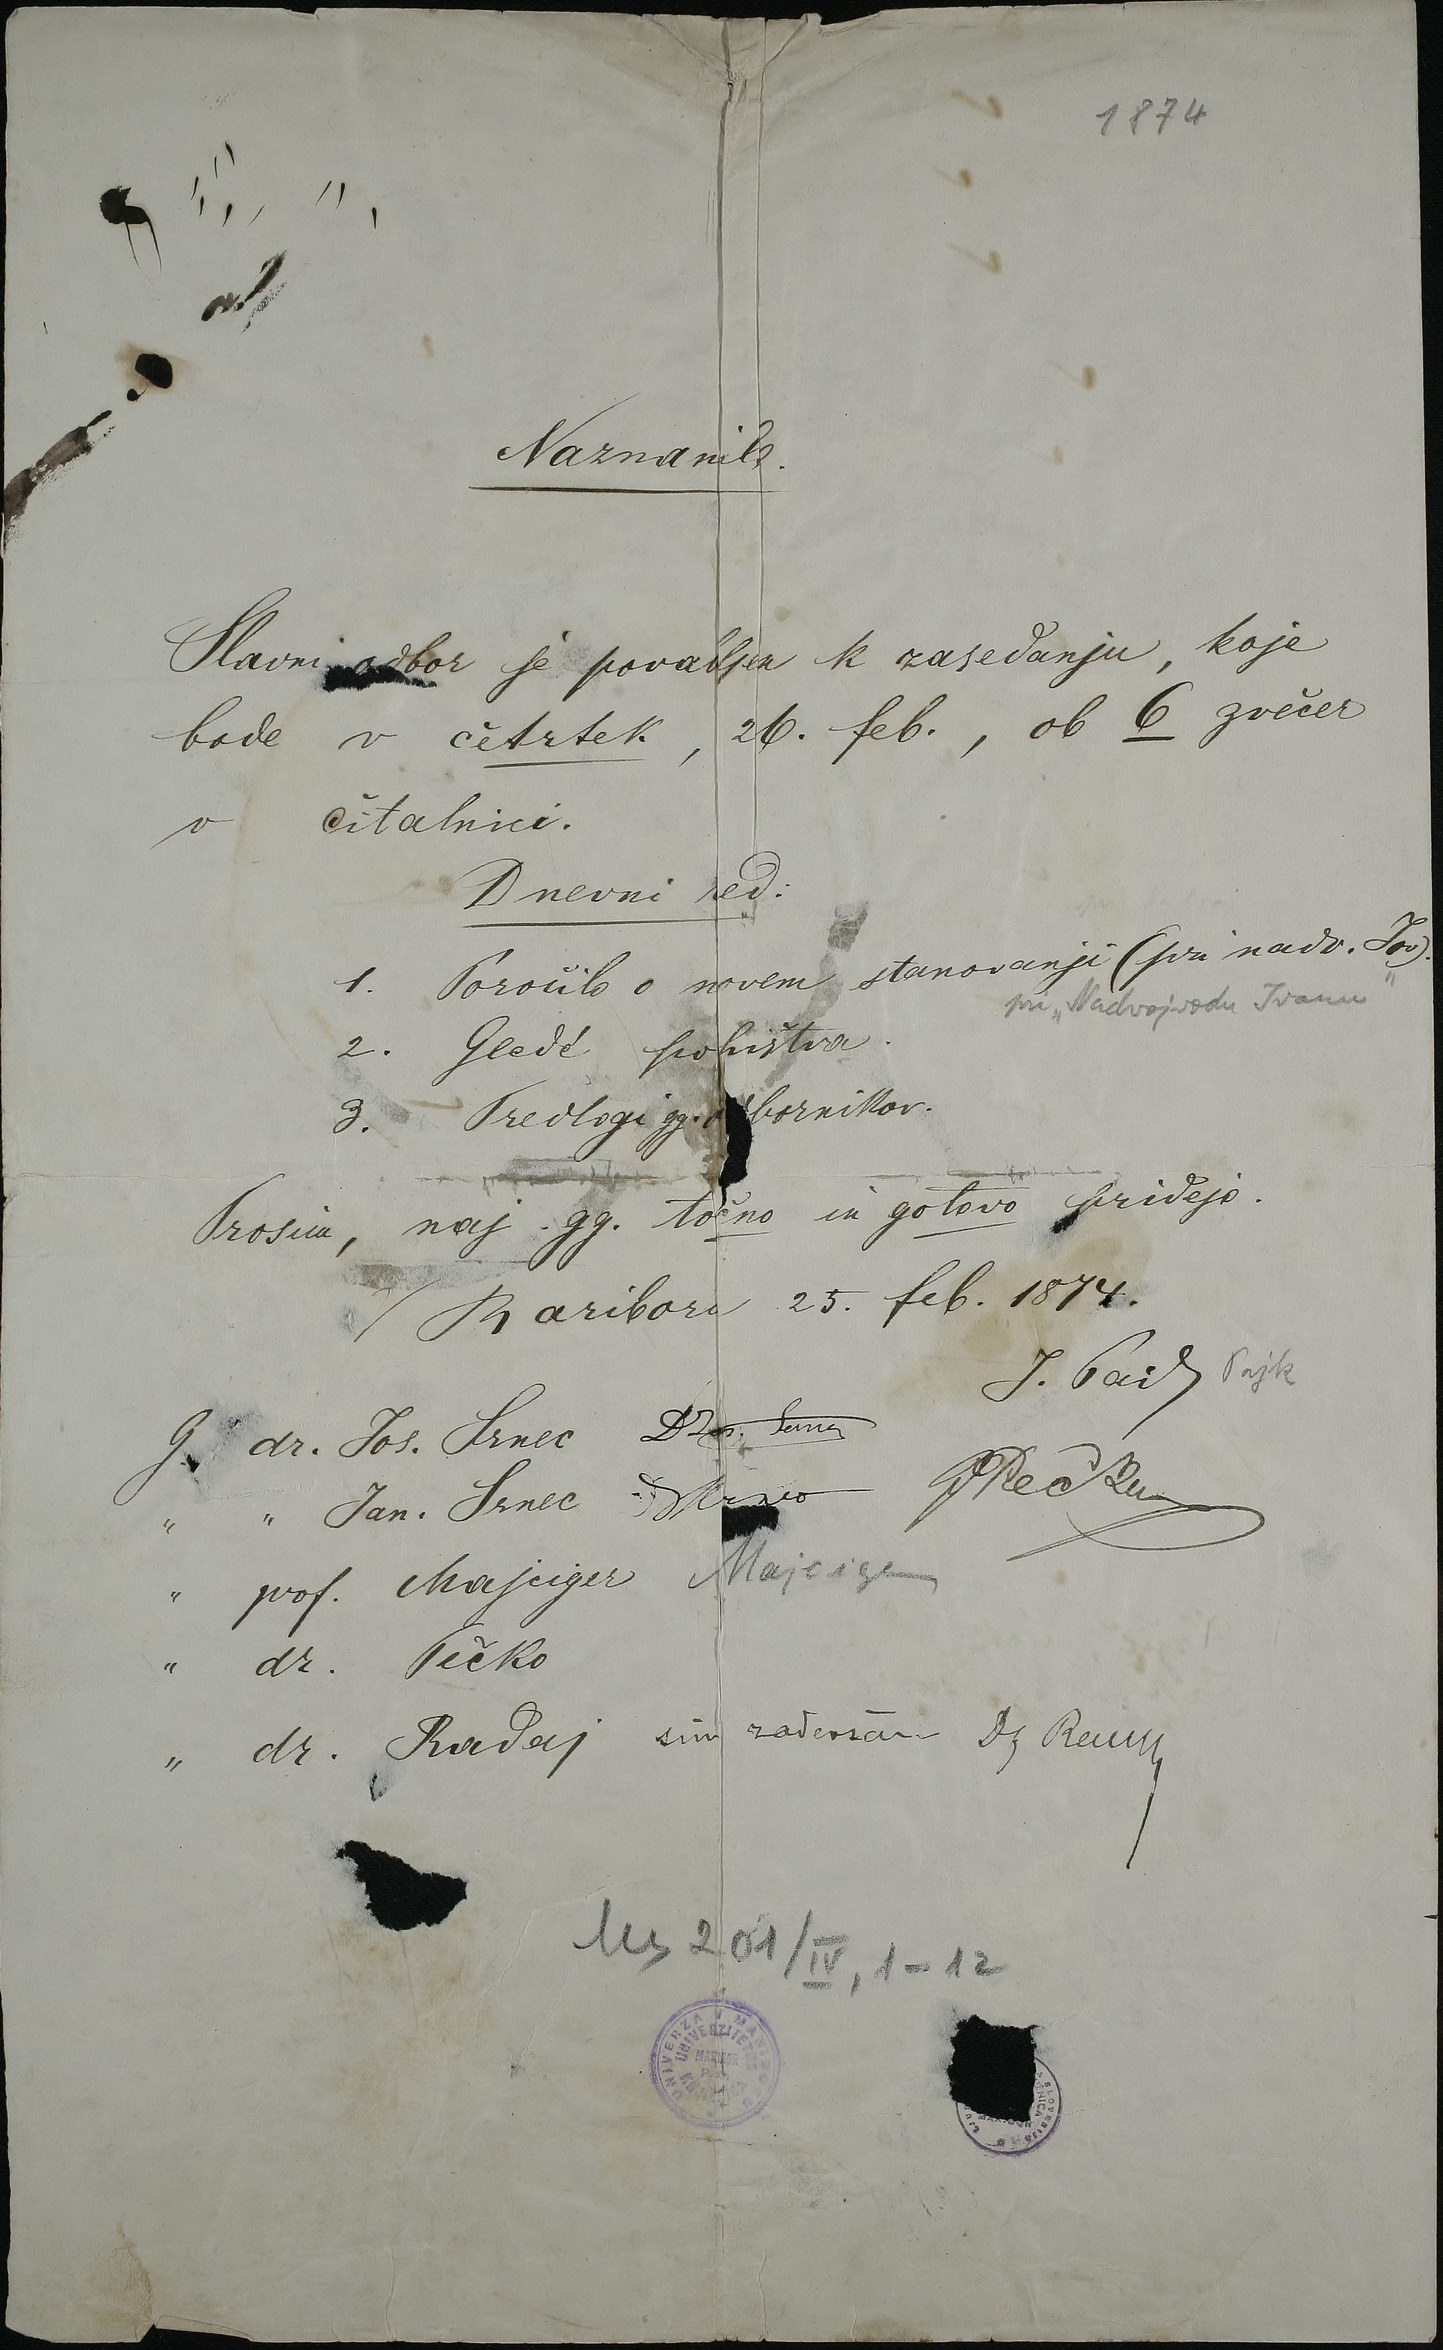 1874
Naznanilo.
Slavni odbor je povabljen k zasedanju, koje
bode v četrtek, 26. feb., ob 6 zvečer
v čitalnici.
Dnevni red:
1. Poročilo o novem stanovanji (pri nadv. Iov).
pri „Nadvojvodu Ivanu"
2. Gledé pohištva.
3. Predlogi gg. odbornikov.
Prosim, naj gg. točno in gotovo pridejo.
V Mariboru 25. feb. 1874.
J. Pajk Pajk
G. dr. Jos. Srnec
„ „ Jan. Srnec
„ prof. Majciger Majciger
„ dr. Pečko
„ dr. Radaj sim zaderžan Dr Radaj
Ms 201/IV, 1-12
UNIVERZA V MARIBORU